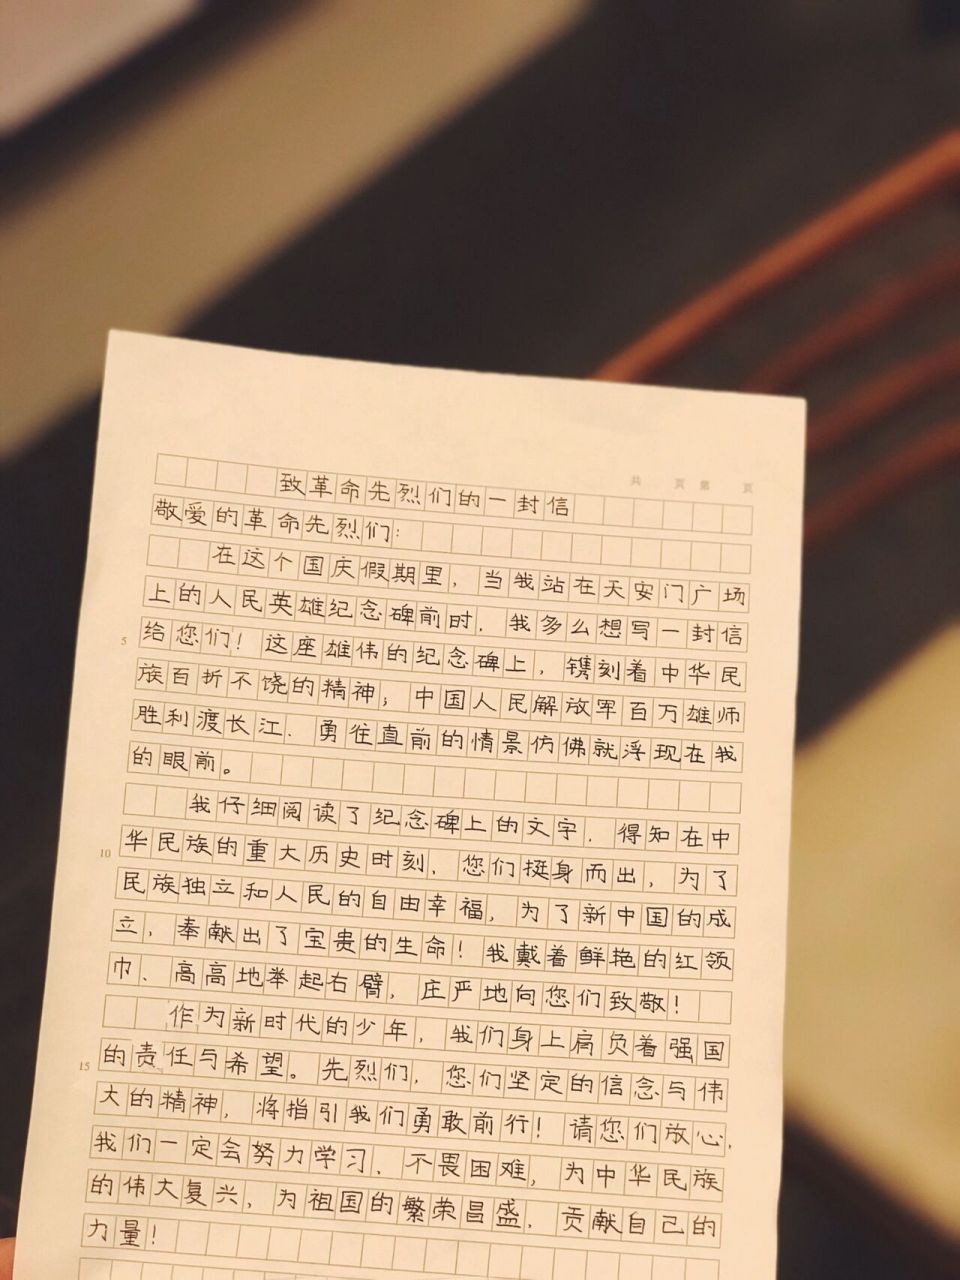 共 页 第 页
致革命先烈们的一封信
敬爱的革命先烈们：
在这个国庆假期里，当我站在天安门广场
上的人民英雄纪念碑前时，我多么想写一封信
5 给您们！这座雄伟的纪念碑上，镌刻着中华民
族百折不饶的精神；中国人民解放军百万雄师
胜利渡长江、勇往直前的情景仿佛就浮现在我
的眼前。
我仔细阅读了纪念碑上的文字，得知在中
10 华民族的重大历史时刻，您们挺身而出，为了
民族独立和人民的自由幸福，为了新中国的成
立，奉献出了宝贵的生命！我戴着鲜艳的红领
巾、高高地举起右臂，庄严地向您们致敬！
作为新时代的少年，我们身上肩负着强国
15 的责任与希望。先烈们，您们坚定的信念与伟
大的精神，将指引我们勇敢前行！请您们放心，
我们一定会努力学习、不畏困难，为中华民族
的伟大复兴，为祖国的繁荣昌盛，贡献自己的
力量！